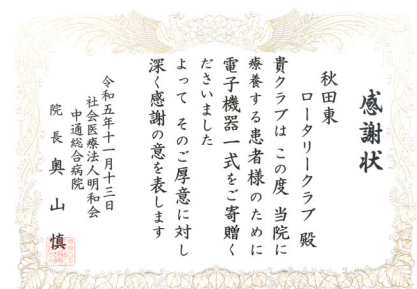 感謝状
秋田東
ロータリークラブ 殿
貴クラブは この度 当院に
療養する患者様のために
電子機器一式をご寄贈く
ださいました
よって そのご厚意に対し
深く感謝の意を表します
令和五年十一月十三日
社会医療法人明和会
中通総合病院
院長 奥山 慎